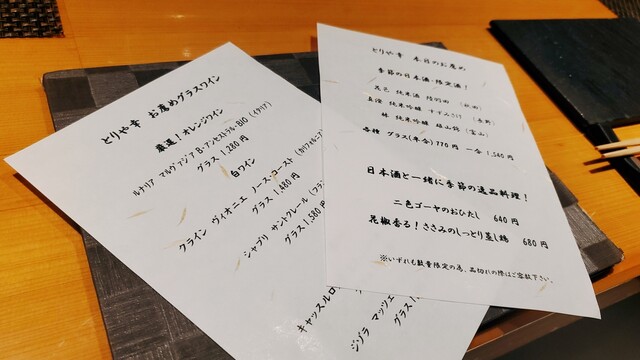 とりや幸 お薦めグラスワイン
厳選！オレンジワイン
ルナリア マルヴァジア B・アンセストラル・BIO (イタリア)
グラス 1,280 円
白ワイン
クライン ヴィオニエ ノース・コースト (カリフォルニ
グラス 1,480 円
シャブリ サントクレール (フラ
グラス 1,580 円
キャッスルロ
ジゾラ マッツェ
グラス 1,
とりや幸 本日のお薦め
季節の日本酒・限定酒！
純米酒 (秋田)
純米吟醸 すずみさけ (長野)
林 純米吟醸 雄山錦 (富山)
各種 グラス(半合) 770 円 一合 1,540 円
日本酒と一緒に季節の逸品料理！
二色ゴーヤのおひたし 640 円
花椒香る！ささみのしっとり蒸し鶏 680 円
※いずれも数量限定の為、品切れの際はご容赦下さい。